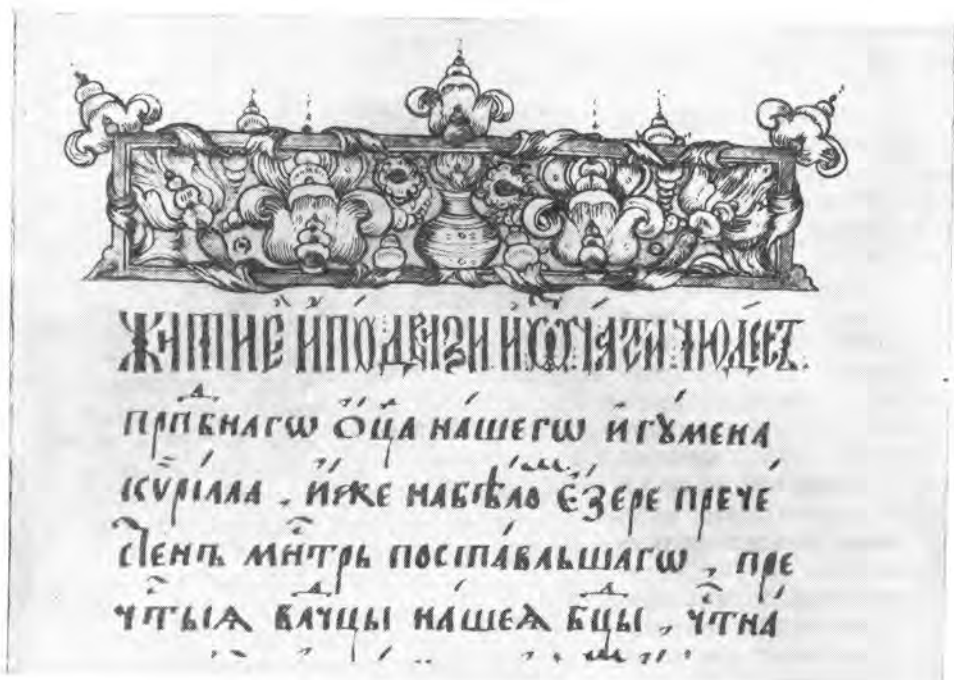 Жи́тїе и҆ по́двиѕи и҆ ѿча́сти чюде́съ.
прпⷣбнагѡ ѻ҆ц҃а на́шегѡ и҆гꙋ́мена
кѷрі́лла , и҆́же на бѣ́ломъ є҆́зере прече
сте́нъ мнⷭ҇трь поста́вльшагѡ , пре
чⷭ҇тыѧ влⷣчцы на́шеѧ бцⷣы , чⷭ҇тна́